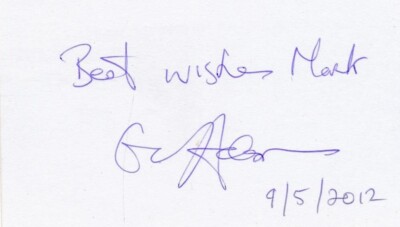 Best wishes Mark
9/5/2012